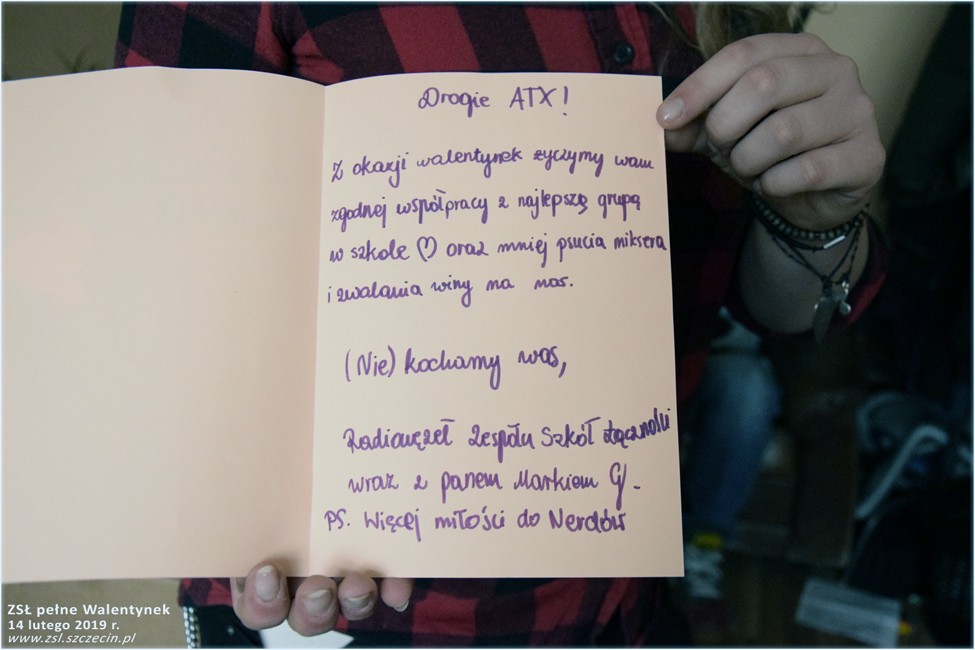 Drogie ATX!
Z okazji walentynek życzymy wam
zgodnej współpracy z najlepszą grupą
w szkole ♡ oraz mniej psucia miksera
i zwalania winy na nas.
(Nie) kochamy was,
Radiowęzeł Zespołu Szkół Łączności
wraz z panem Markiem G.
PS. Więcej miłości do Nerdów
ZSŁ pełne Walentynek
14 lutego 2019 r.
www.zsl.szczecin.pl